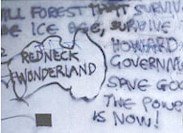 ILL FOREST THAT SURVIV
HE ICE AGE, SURVIVE
HOWARD
GOVERNM
REDNECK
WONDERLAND
SAVE GOO
THE POWE
IS NOW!